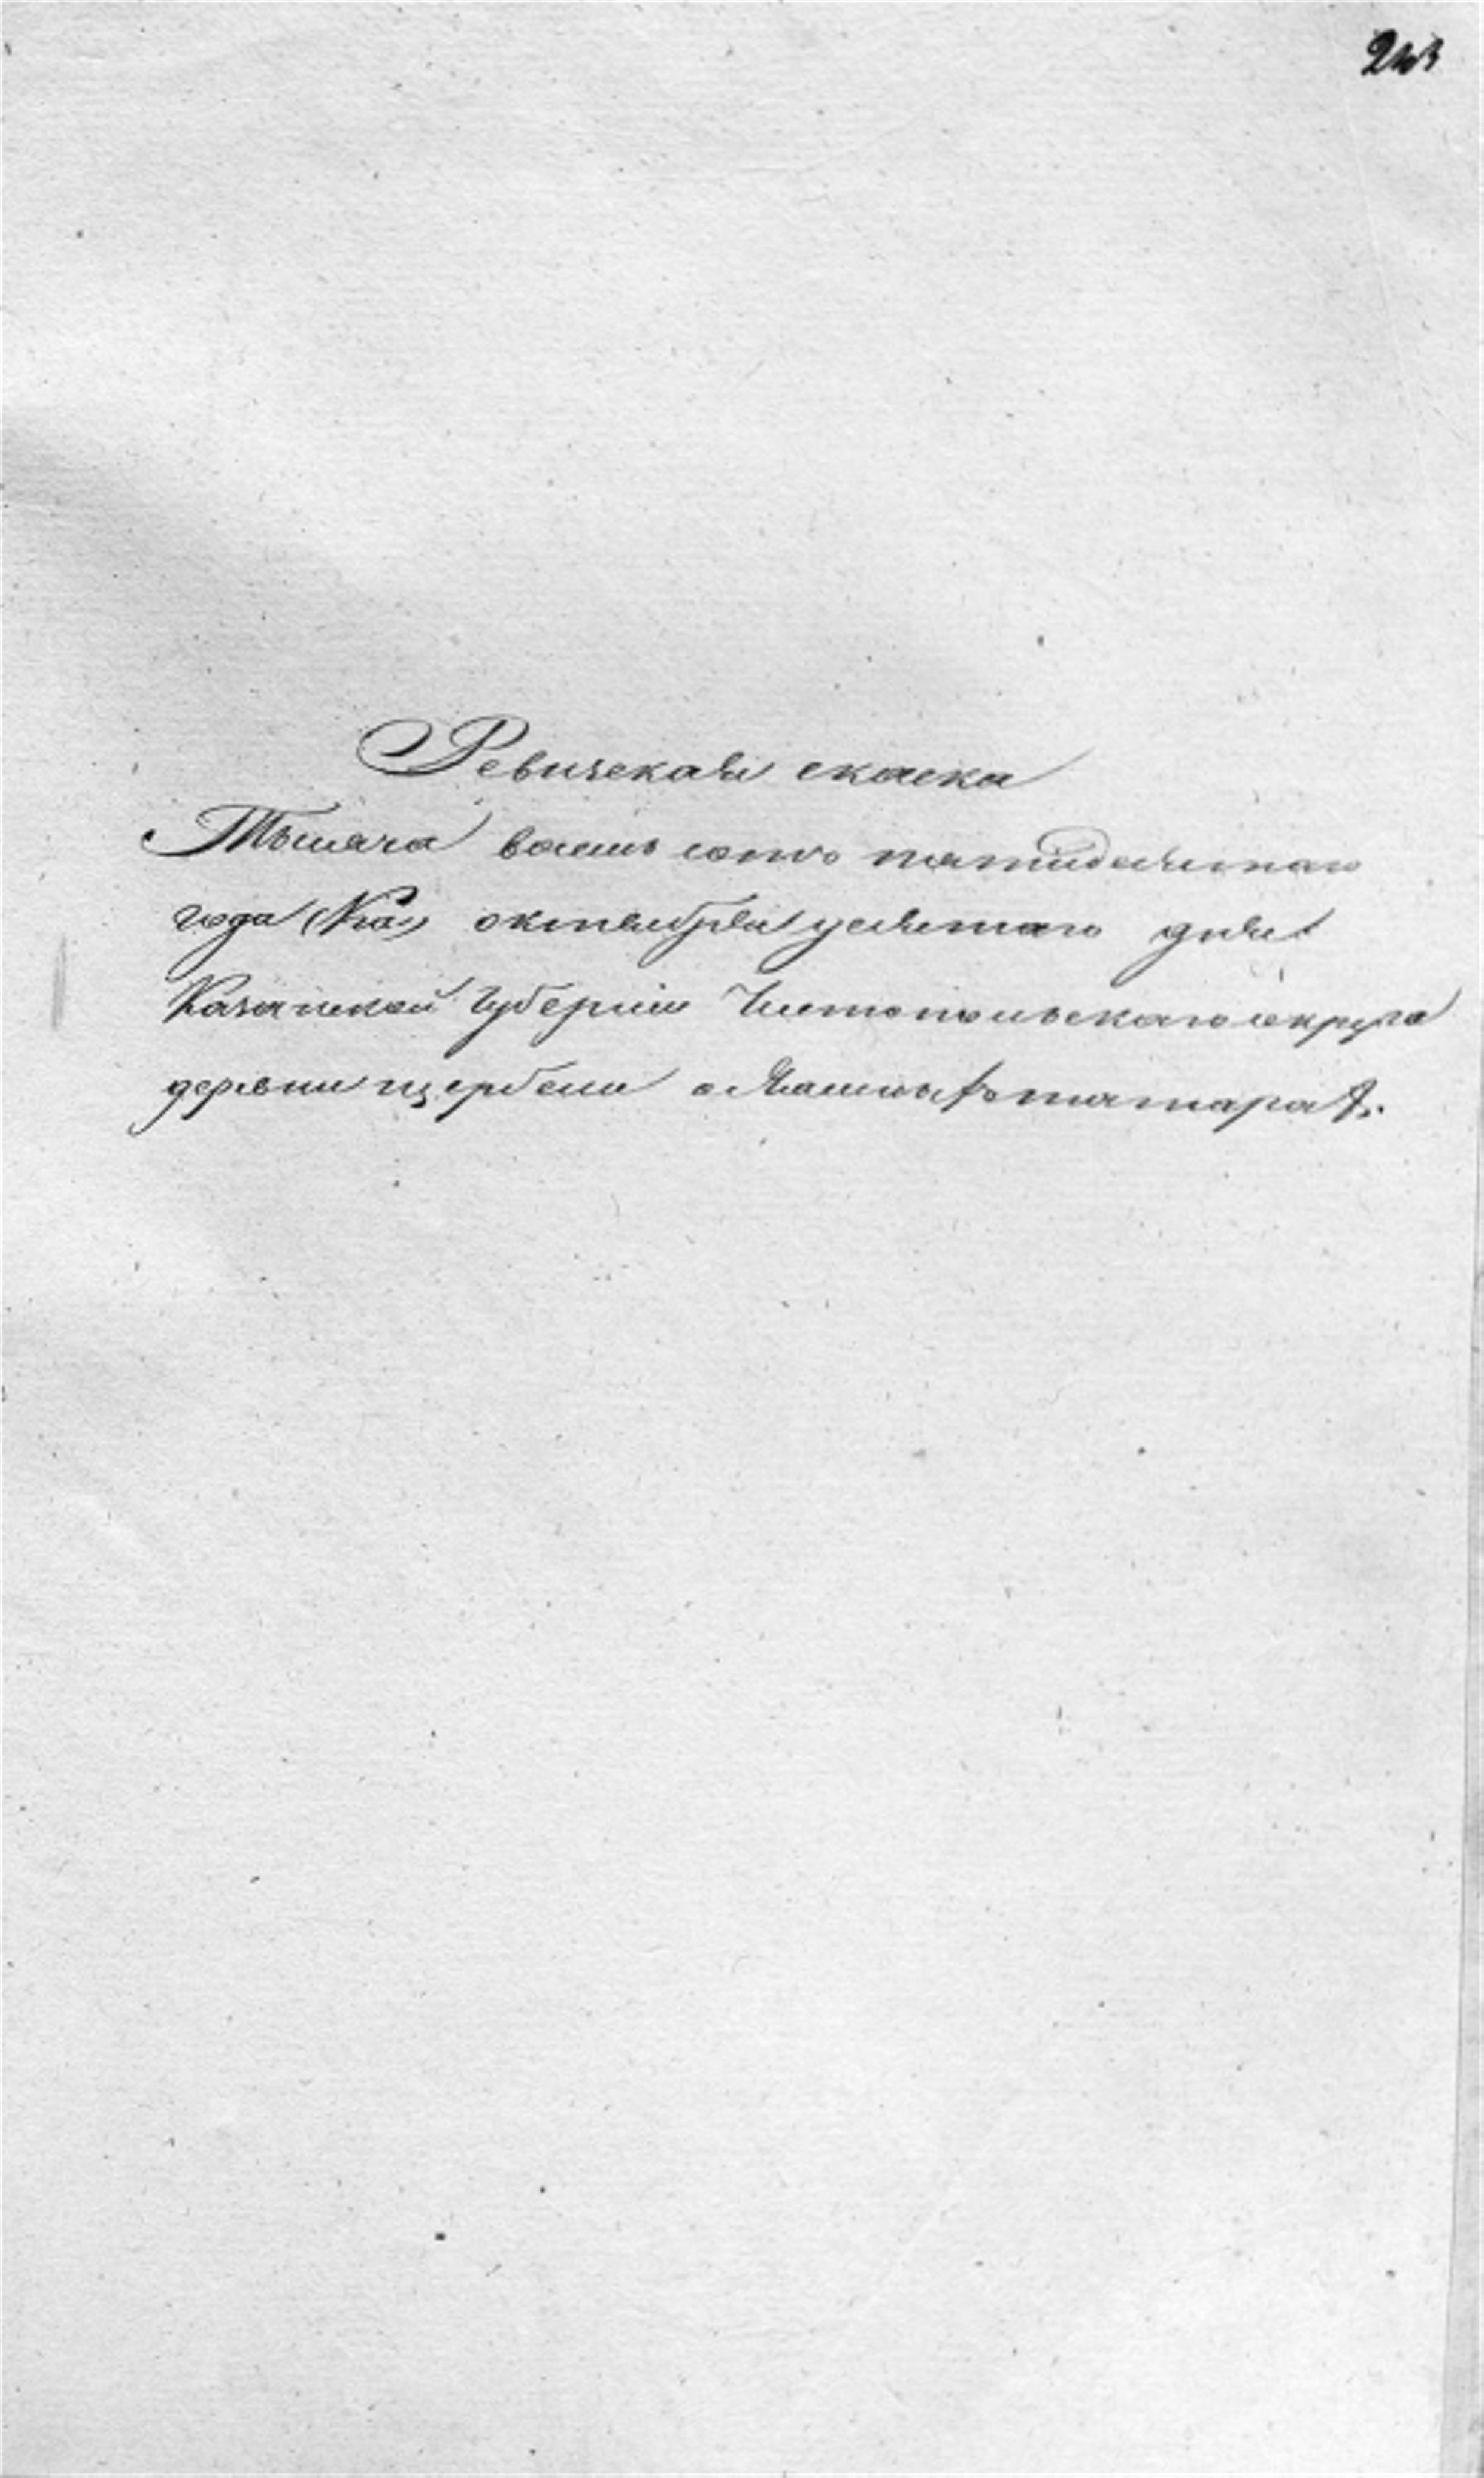 Ревичская скаска
Тысяча восемь сотъ пятидесятаго
года октября десятаго дня
Казанской Губерніи Чистопольскаго округа
деревни щербени о Ясашныхъ татарахъ.